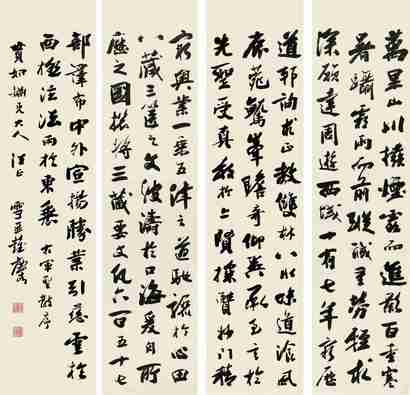 萬里山川撥煙霞而進影百重寒
暑躡霜雨而前蹤誠重勞輕求
深願達周遊西域十有七年窮歷
道邦詢求正教雙林八水味道飡風
鹿苑鷲峯瞻奇仰異承至言於
先聖受真教於上賢探賾妙門精
窮奧業一乘五律之道馳驟於心田
八藏三篋之文波濤於口海爰自所
歷之國總將三藏要文凡六百五十七
部譯布中外宣揚勝業引慈雲於
西極注法雨於東垂 聖教序
大人 正
雪